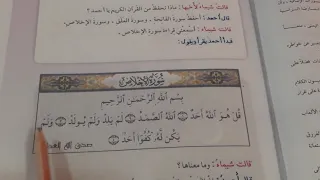 قالت شيماء لأخيها: ماذا تحفظ من القرآن الكريم يا أحمد؟
قال أحمد: أحفظ سورة الفاتحة، وسورة الفلق، وسورة الإخلاص.
قالت شيماء: أسمعني قراءة سورة الإخلاص.
فبدأ أحمد يقرأ ويقول:
سورة الإخلاص
بِسْمِ اللَّهِ الرَّحْمَٰنِ الرَّحِيمِ
قُلْ هُوَ اللَّهُ أَحَدٌ ۝ اللَّهُ الصَّمَدُ ۝ لَمْ يَلِدْ وَلَمْ يُولَدْ ۝ وَلَمْ
يَكُن لَّهُ كُفُوًا أَحَدٌ ۝
صدق الله العظيم
قالت شيماء: وما معناها؟